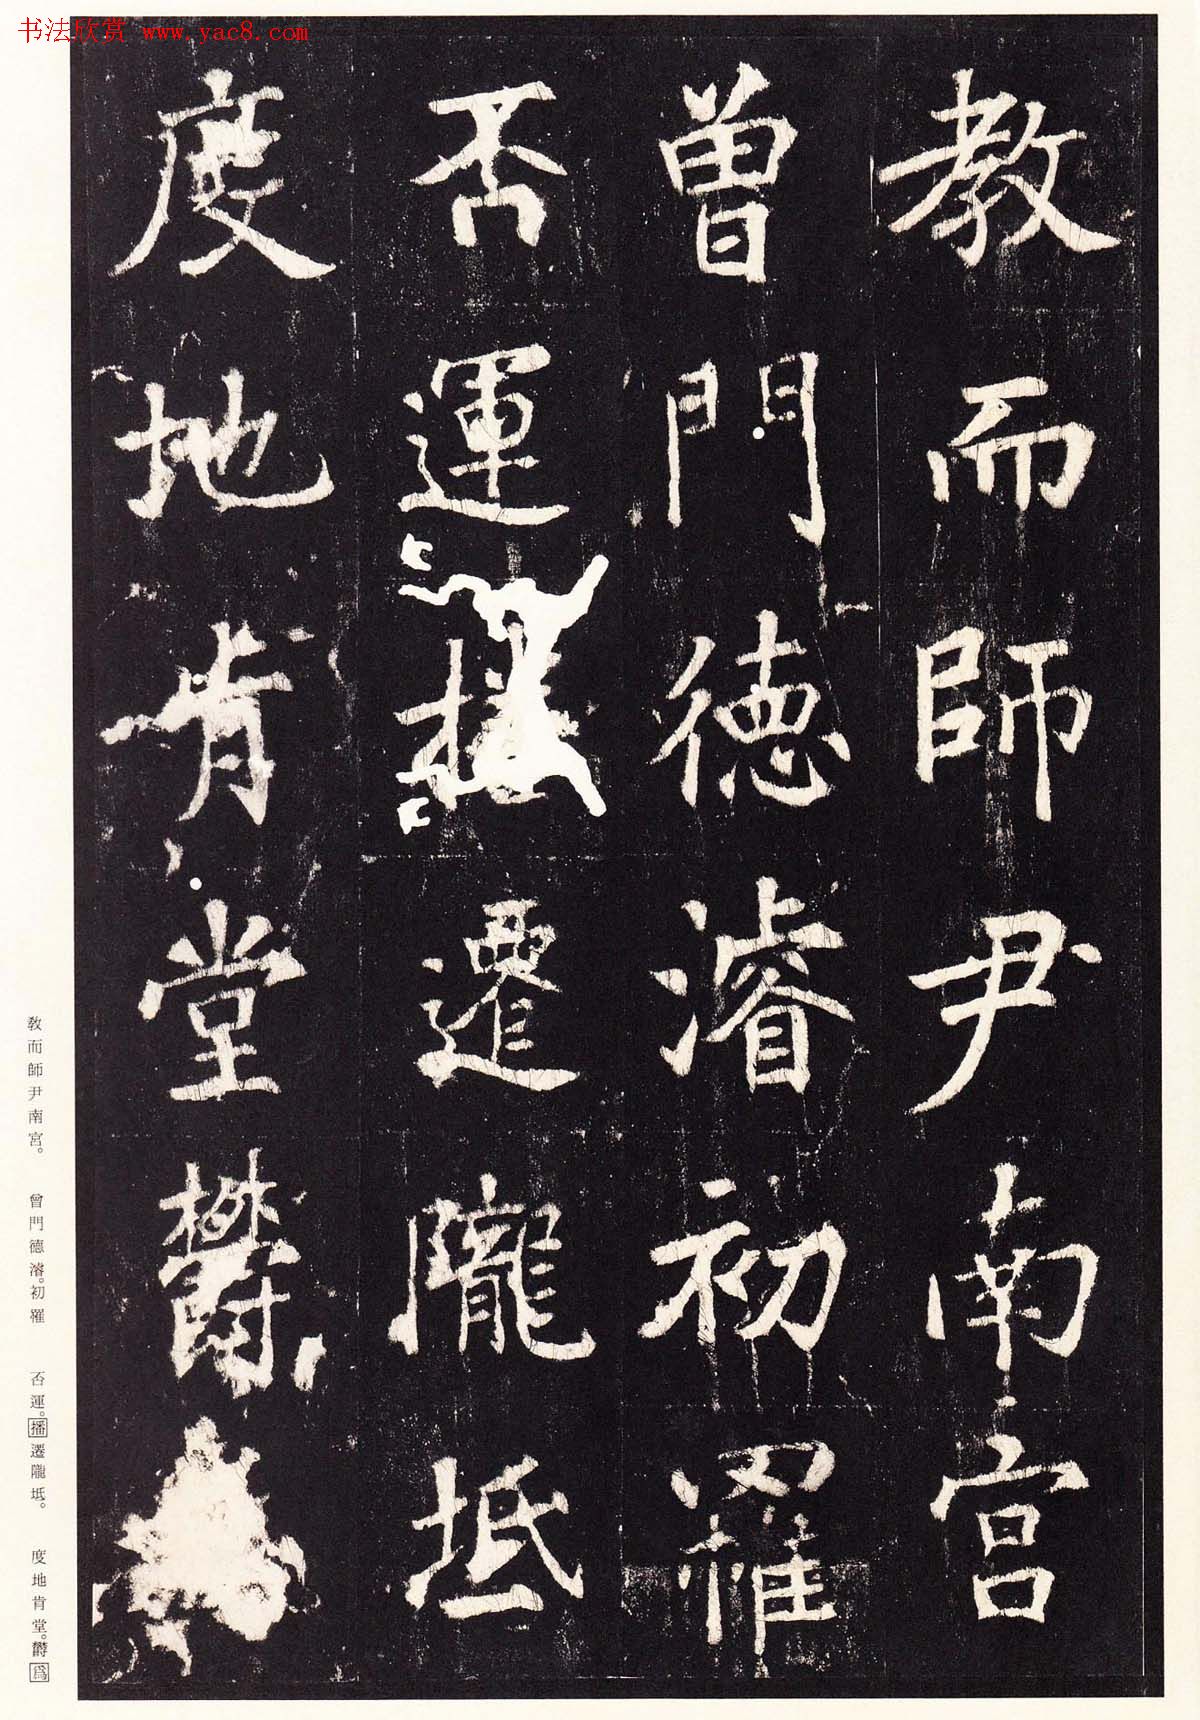 书法欣赏 www.yac8.com
教而師尹南宫
曾門德濬初羅
否運播遷隴坻
度地肯堂欝
教而師尹南宮。 曾門德濬。初羅 否運。播遷隴坻。 度地肯堂。欝爲